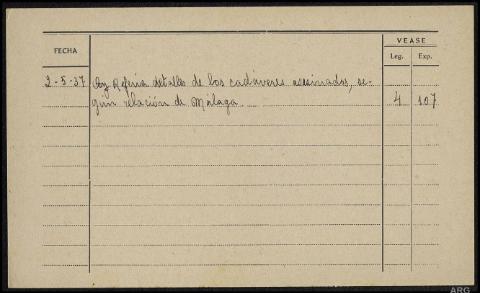 FECHA
VEASE
Leg. Exp.
2-5-37 Refería detalles de los cadáveres asesinados, se-
gún relación de Málaga 4 107
ARG